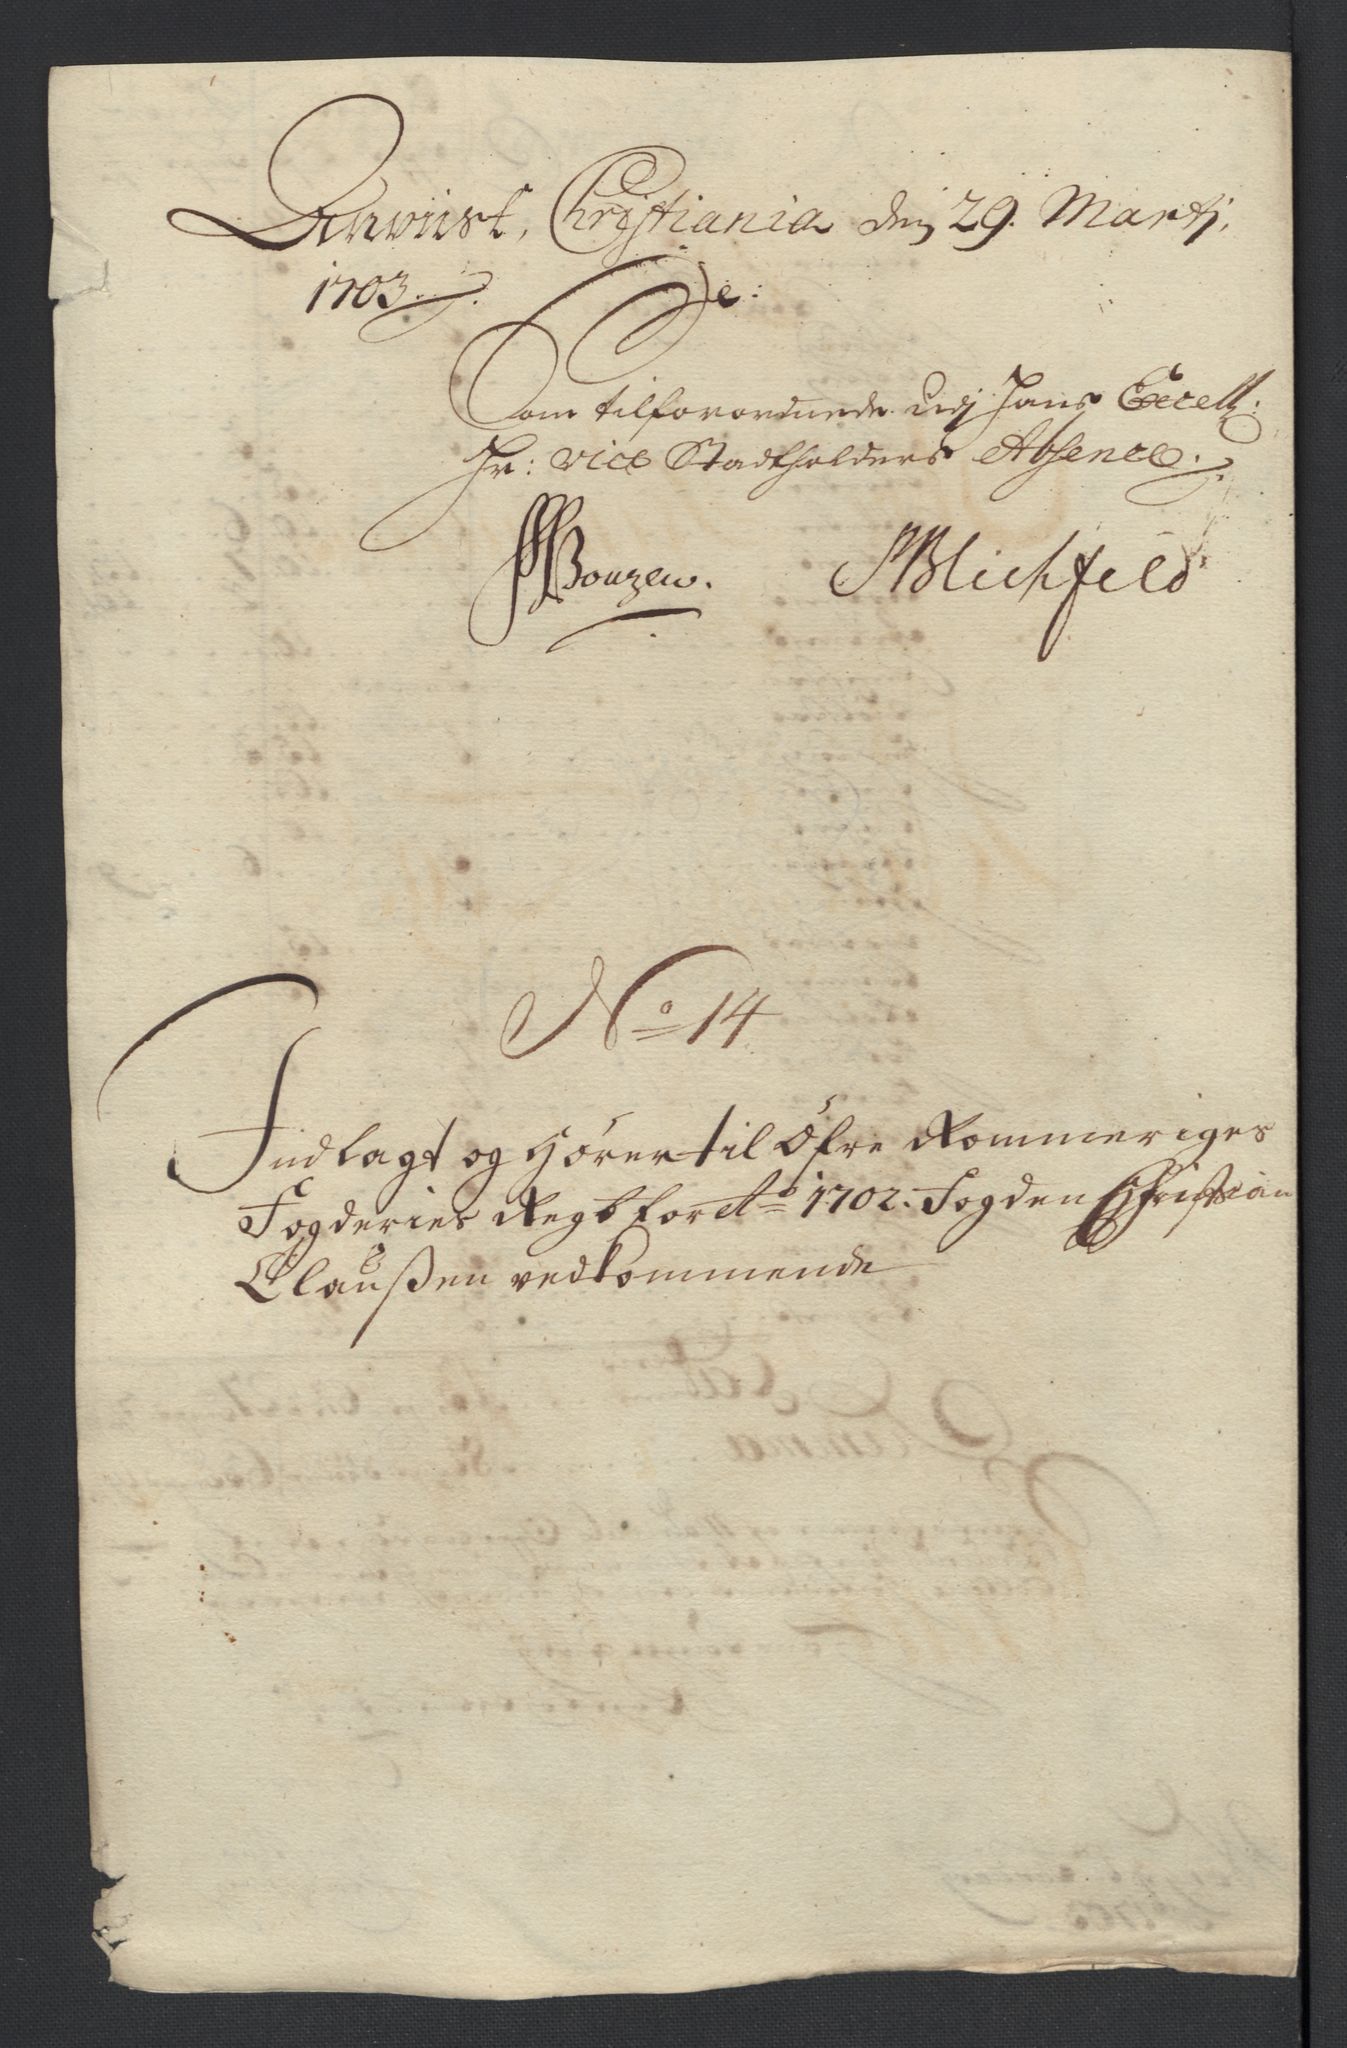 Anviist, Christiania den 29. Martj,
1703.
De:
Som tilforordnede udj Hans Excell:
Hr: vice Stadtholders Absence.
Blichfeld
No 14
Indlagt og hører til Öfre Rommeriges
Fogderies Regsk for Ao 1702. Fogden Christian
Claußen vedkommende